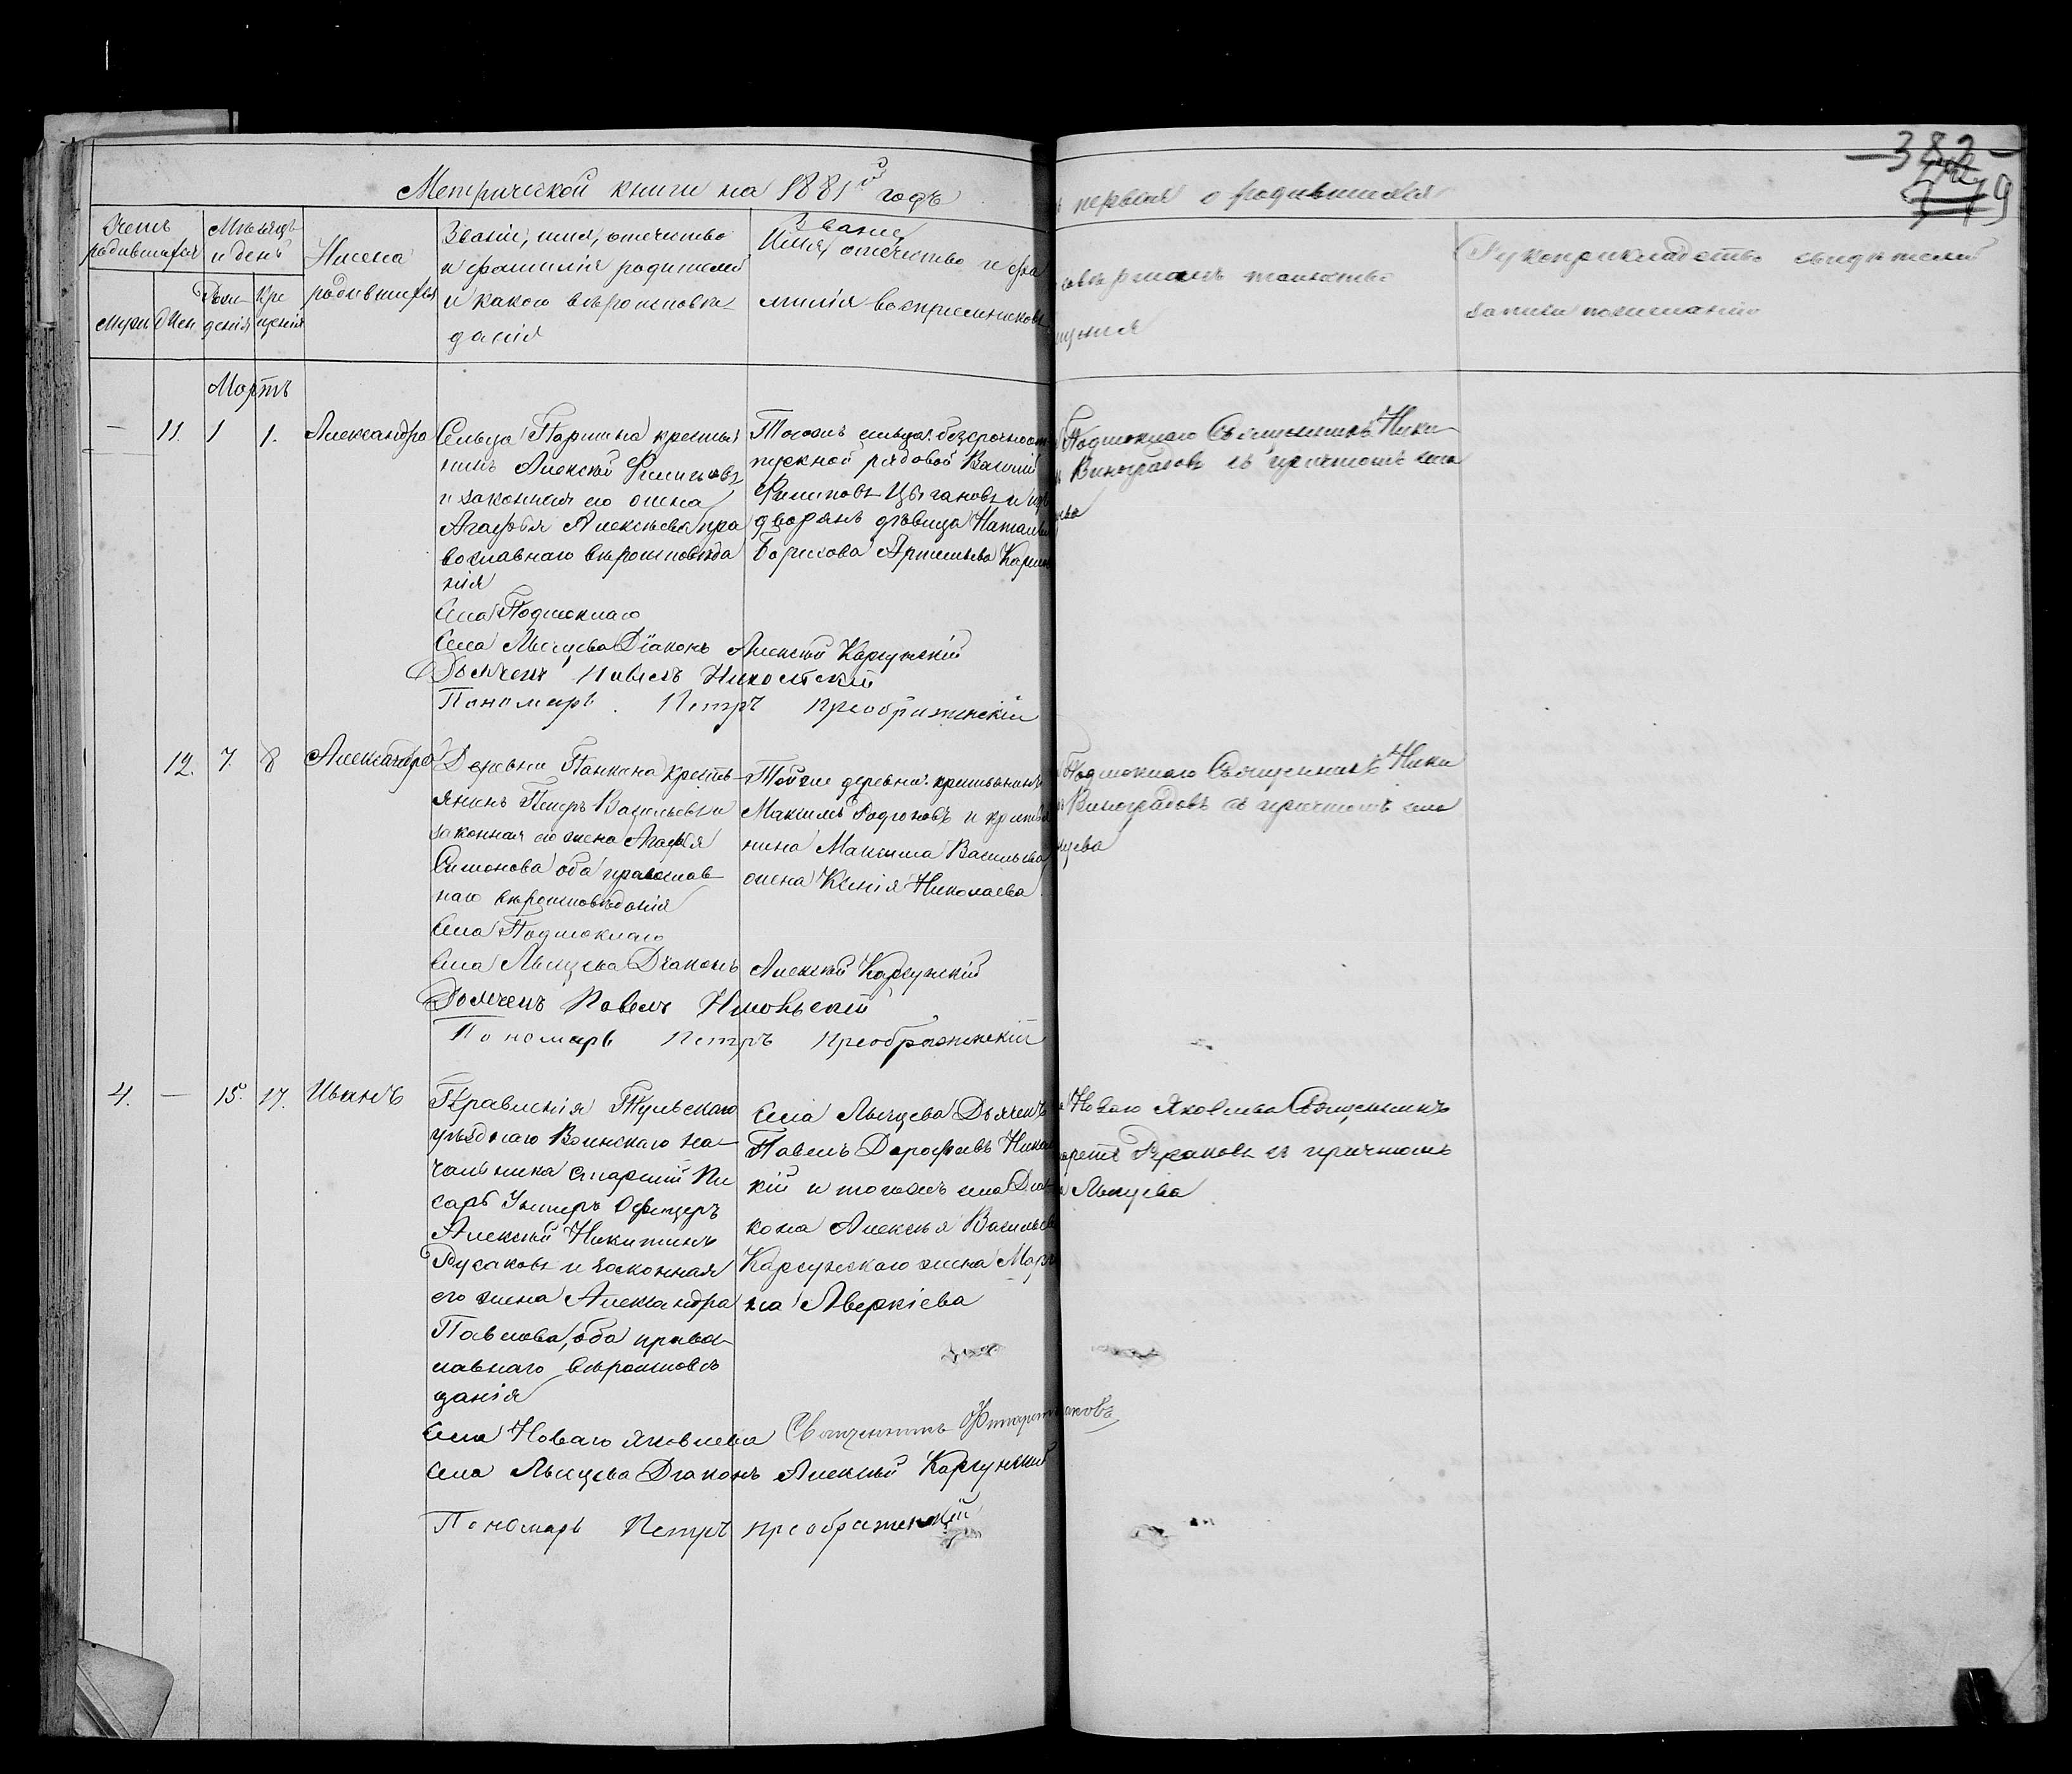 Метрической книги на 1881й годъ
первая о родившихся
382
779
Счетъ родившихся
Мѣсяцъ и день
Имена родившихся
Званіе, имя, отчество
и фамилія родителей
и какого вѣроисповѣ-
данія
Званіе,
Имя, отчество и фа
милія воспріемниковъ
совершалъ таинство
щенія
Рукоприкладство свидѣтелей
записи по желанію
муж
Жен
Рож-
денія
Кре
щенія
Мартъ
— 11. 1 1. Александра
Сельца Паршина крестья
нинъ Алексѣй Филиповъ
и законная его жена
Агафья Алексѣева пра
вославнаго вѣроисповѣда
нія
Тогожъ сельца безсрочноот
пускной рядовой Василій
Филиповъ Цыгановъ и изъ
дворянъ дѣвица Наталья
Борисова Арсеньева
Священникъ Ники
Виноградовъ съ причтомъ села
Села
Села Лысцева Діаконъ Алексѣй Каргунскій
Дьячекъ Павелъ Никольскій
Пономарь Петръ Преображенскій
12. 7. 8 Александра
Деревни Панкина кресть
янинъ Петръ Васильевъ и
законная его жена Агафья
Симонова оба православ
наго вѣроисповѣданія
Тойже деревни крестьянинъ
Максимъ Родіоновъ и крестья
нина Максима Васильева
жена Ксенія Николаева
Священникъ Ники
Виноградовъ съ причтомъ села
Села
Села Лысцева Діаконъ Алексѣй Каргунскій
Дьячекъ Павелъ Никольскій
Пономарь Петръ Преображенскій
4. — 15. 17. Иванъ
Правленія Тульскаго
уѣзднаго Воинскаго на-
чальника старшій Пи
сарь Унтеръ Офицеръ
Алексѣй Никитинъ
Русаковъ и законная
его жена Александра
Павлова, оба право
славнаго вѣроисповѣ
данія
Села Лысцева Дьячекъ
Павелъ Дорофѣевъ Николь
кій и тогожъ села Діа
кона Алексѣя Васильева
Каргунскаго жена Мар
на Аверкіева
Новаго Яковлева Священникъ
съ причтомъ
Лысцева
Села Новаго Яковлева Священникъ
Села Лысцева Діаконъ Алексѣй Каргунскій
Пономарь Петръ Преображенскій